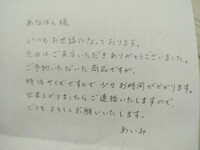 あなはん様
いつもお世話になっております。
先日はご来店いただきありがとうございました。
ご予約いただいた商品ですが、
特注サイズですので少々お時間がかかります。
出来上がりましたらご連絡いたしますので、
どうぞよろしくお願いいたします。
あいみ